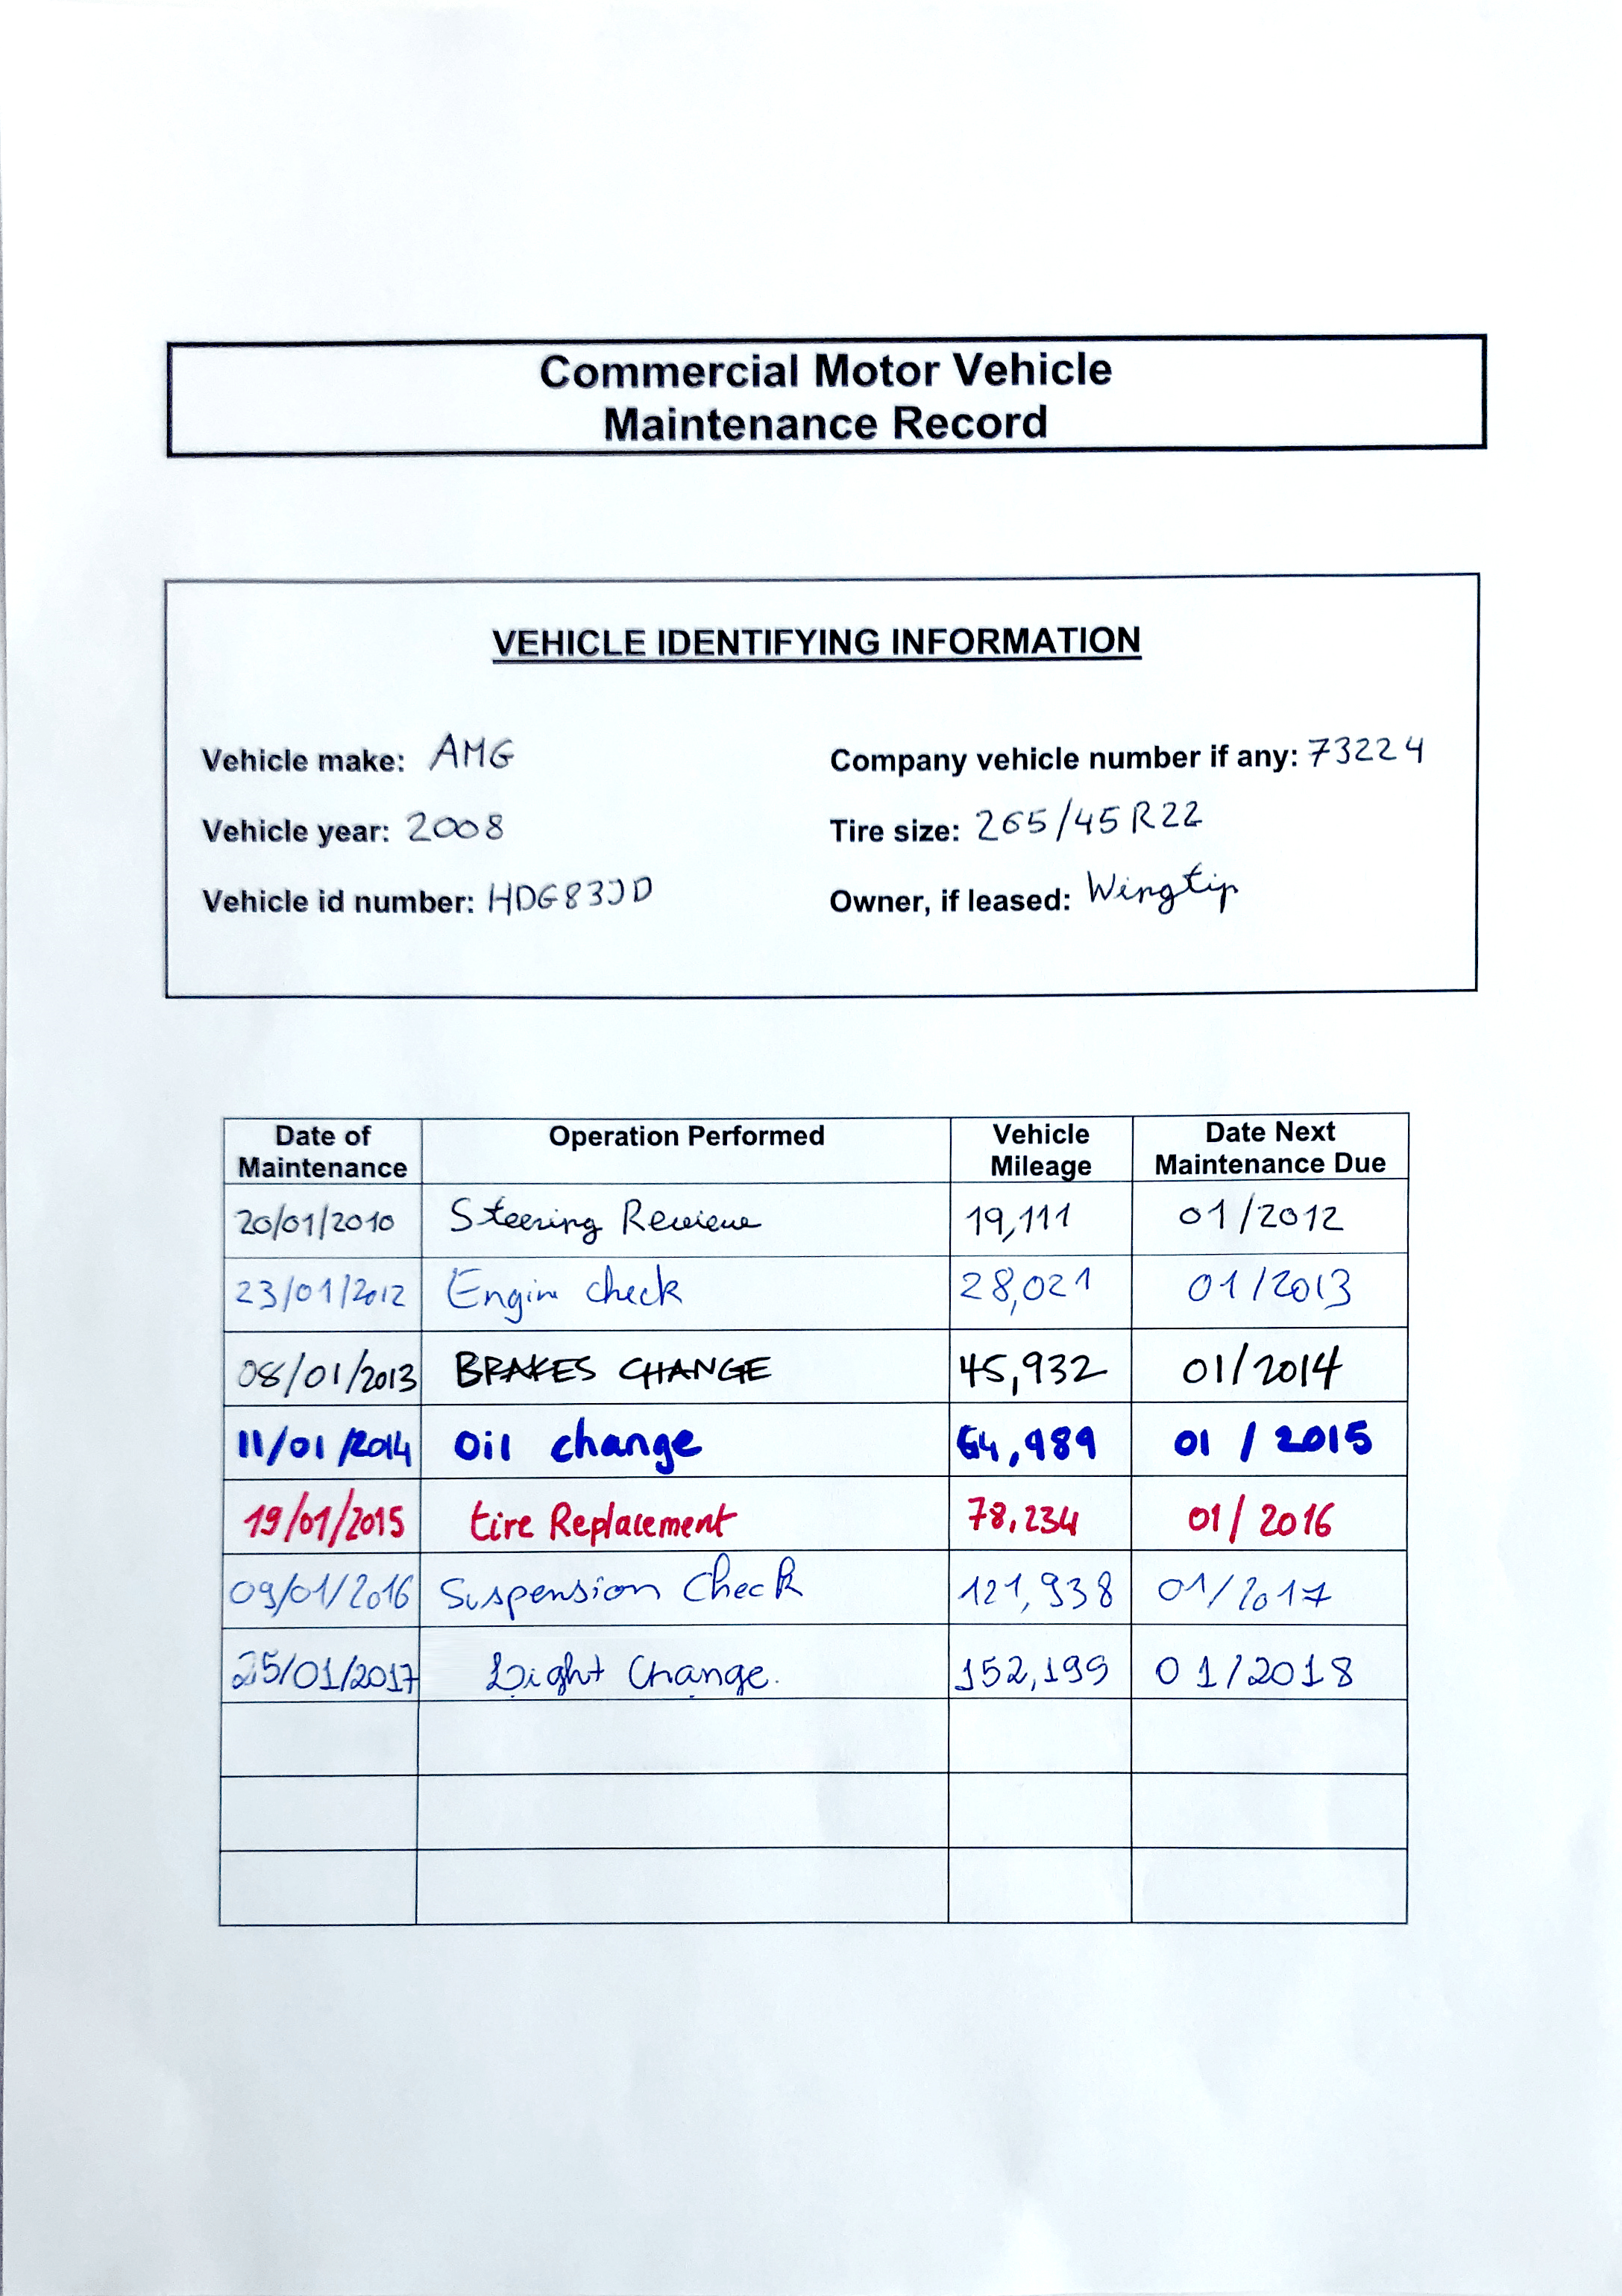 Commercial Motor Vehicle
Maintenance Record
VEHICLE IDENTIFYING INFORMATION
Vehicle make: AMG Company vehicle number if any: 73224
Vehicle year: 2008 Tire size: 265/45 R22
Vehicle id number: HDG83JD Owner, if leased: Wingtip
Date of Maintenance Operation Performed Vehicle Mileage Date Next Maintenance Due
20/01/2010 Steering Review 19,111 01/2012
23/01/2012 Engine check 28,021 01/2013
08/01/2013 BRAKES CHANGE 45,932 01/2014
11/01/2014 Oil change 64,989 01/2015
19/01/2015 tire Replacement 78,234 01/2016
09/01/2016 Suspension Check 121,938 01/2017
25/01/2017 Light Change. 152,199 01/2018